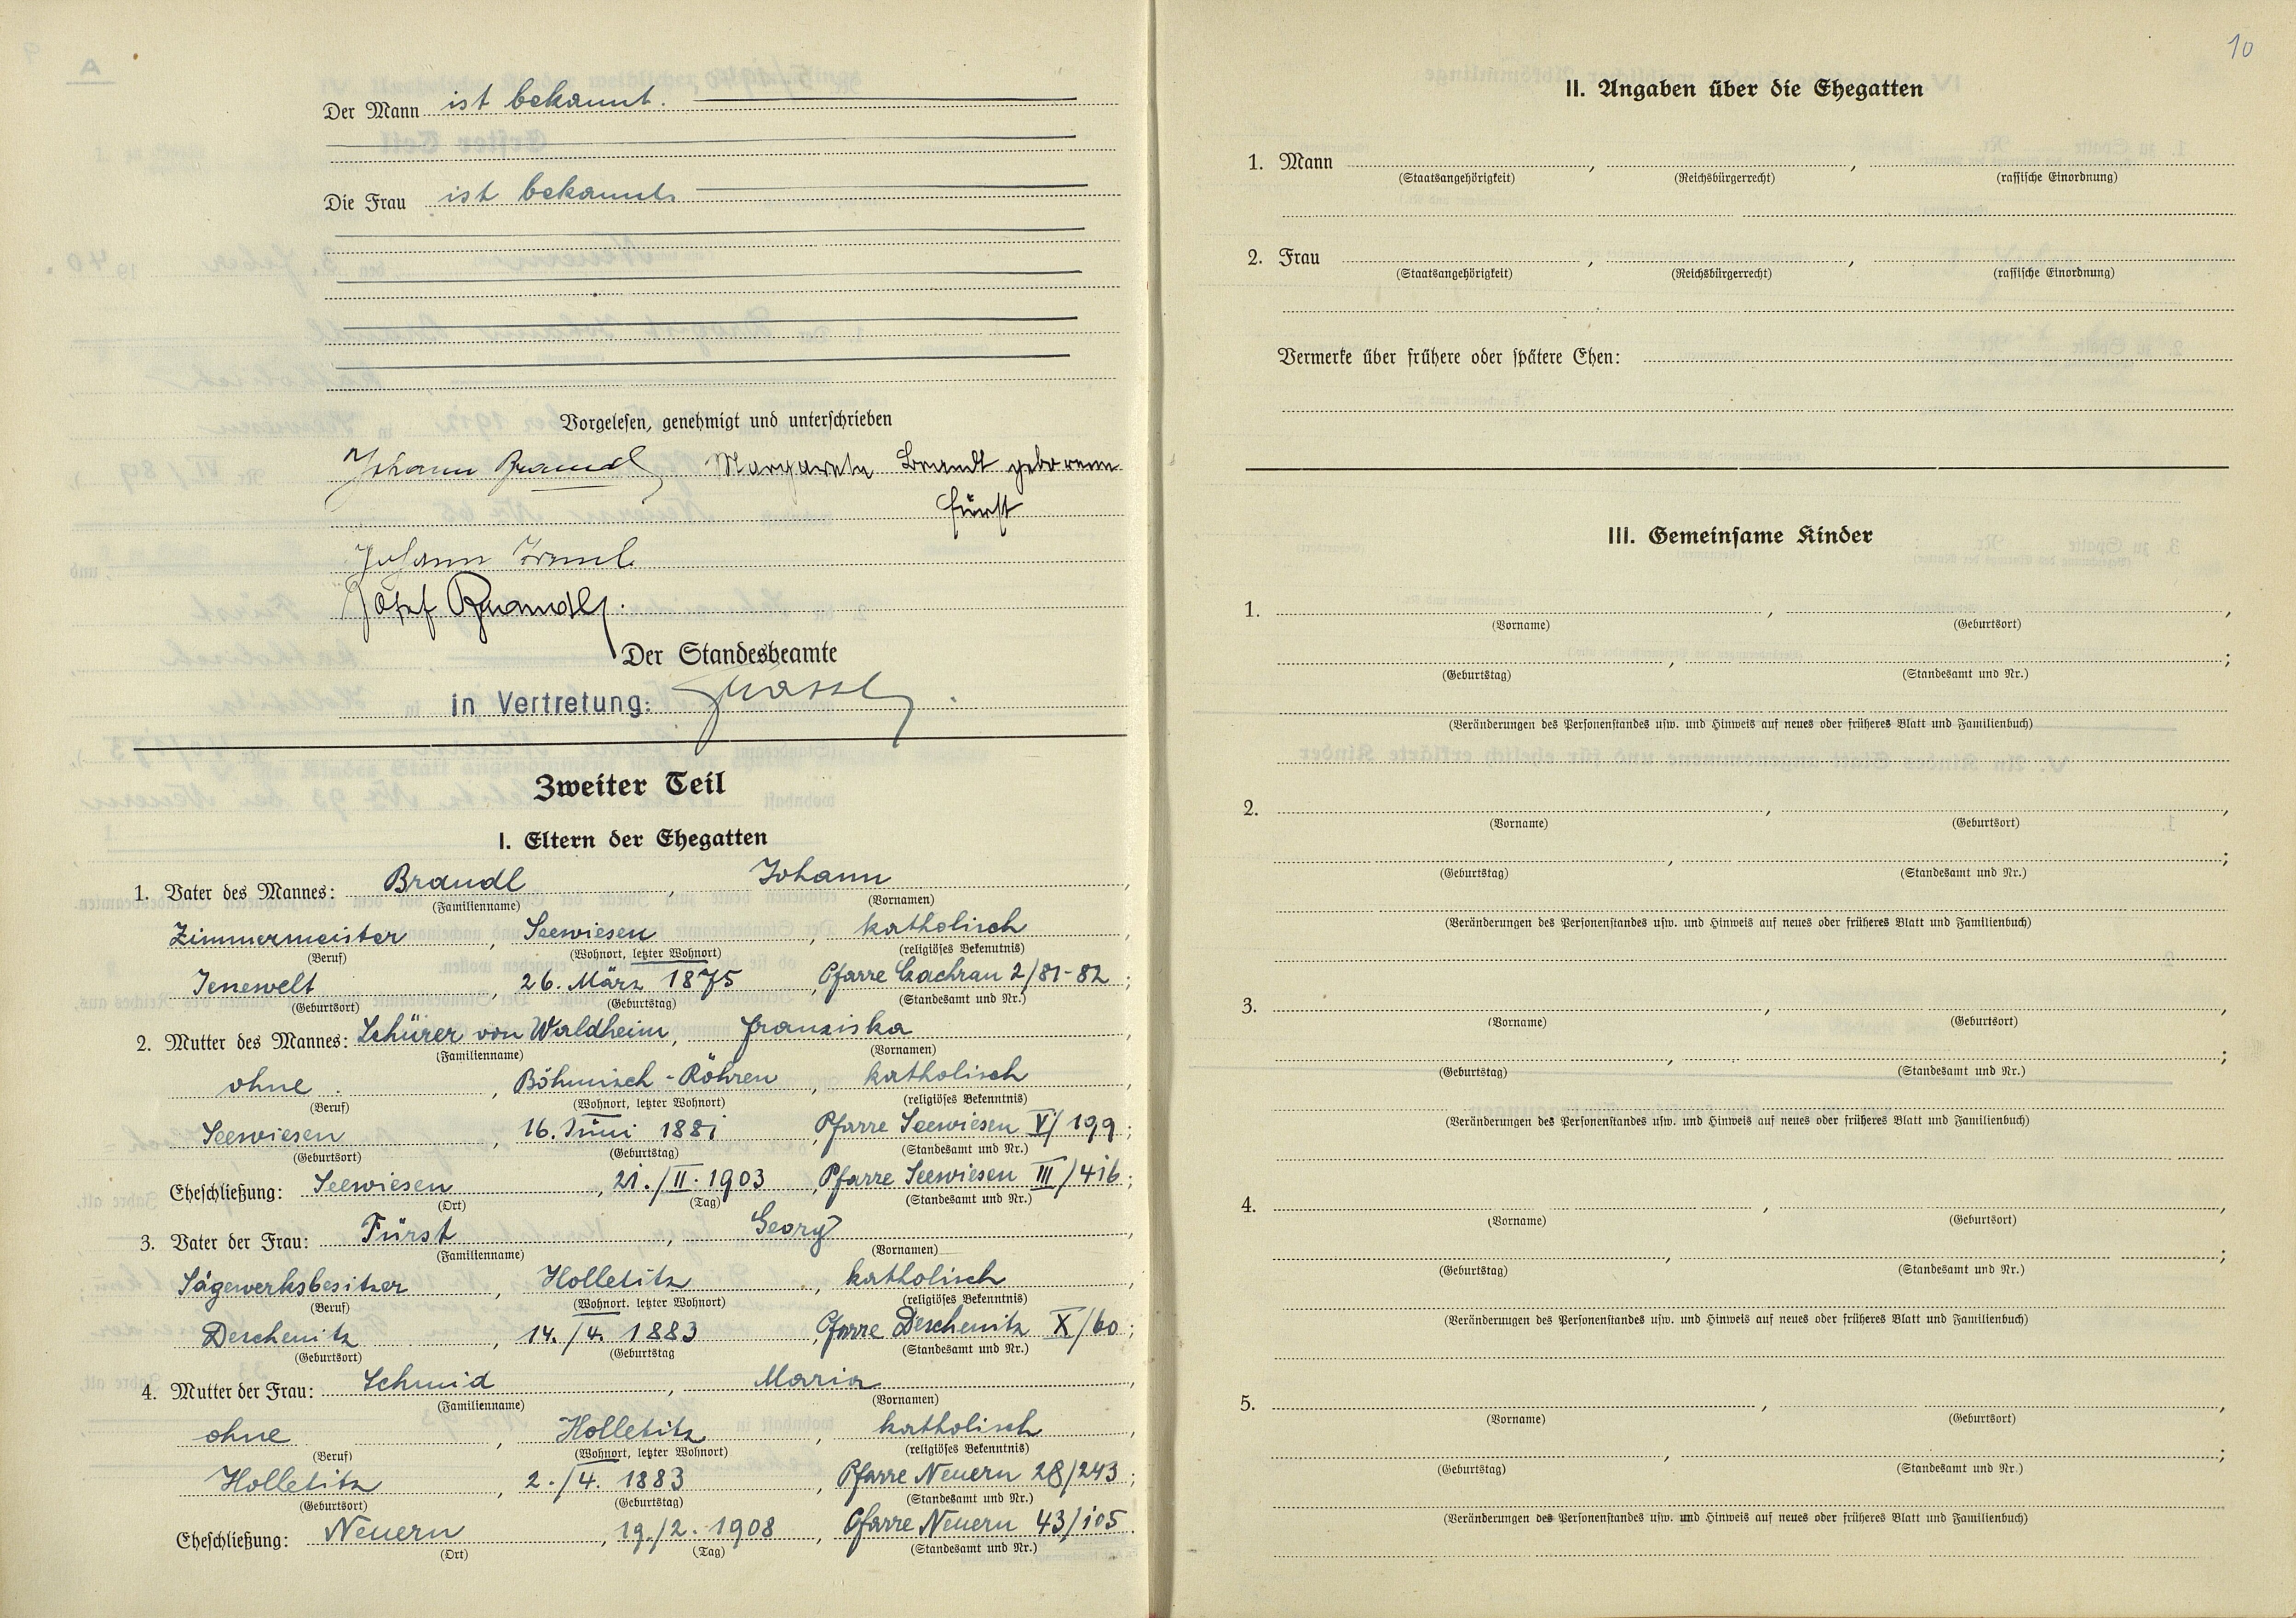 Der Mann ist bekannt.
Die Frau ist bekannt.
Vorgelesen, genehmigt und unterschrieben
Johann Brandl Margarete Brandl geborene
Fürst
Johann
Josef Brandl.
Der Standesbeamte
in Vertretung:
Zweiter Teil
I. Eltern der Ehegatten
1. Vater des Mannes: Brandl, Johann,
(Familienname) (Vornamen)
Zimmermeister, Seewiesen, katholisch,
(Beruf) (Wohnort, letzter Wohnort) (religiöses Bekenntnis)
Jenewelt, 26. März 1875, Pfarre Gachrau 2/81-82;
(Geburtsort) (Geburtstag) (Standesamt und Nr.)
2. Mutter des Mannes: Schürer von Waldheim, Franziska,
(Familienname) (Vornamen)
ohne, Böhmisch-Röhren, katholisch,
(Beruf) (Wohnort, letzter Wohnort) (religiöses Bekenntnis)
Seewiesen, 16. Juni 1881, Pfarre Seewiesen V/199;
(Geburtsort) (Geburtstag) (Standesamt und Nr.)
Eheschließung: Seewiesen, 21./II. 1903, Pfarre Seewiesen III/416;
(Ort) (Tag) (Standesamt und Nr.)
3. Vater der Frau: Fürst, Georg,
(Familienname) (Vornamen)
Sägewerksbesitzer, Holletitz, katholisch,
(Beruf) (Wohnort, letzter Wohnort) (religiöses Bekenntnis)
Deschenitz, 14./4. 1883, Pfarre Deschenitz X/60;
(Geburtsort) (Geburtstag (Standesamt und Nr.)
4. Mutter der Frau: Schmid, Maria,
(Familienname) (Vornamen)
ohne, Holletitz, katholisch,
(Beruf) (Wohnort, letzter Wohnort) (religiöses Bekenntnis)
Holletitz, 2./4. 1883, Pfarre Neuern 28/243;
(Geburtsort) (Geburtstag) (Standesamt und Nr.)
Eheschließung: Neuern, 19./2. 1908, Pfarre Neuern 43/105.
(Ort) (Tag) (Standesamt und Nr.)
10
II. Angaben über die Ehegatten
1. Mann , ,
(Staatsangehörigkeit) (Reichsbürgerrecht) (rassische Einordnung)
2. Frau , ,
(Staatsangehörigkeit) (Reichsbürgerrecht) (rassische Einordnung)
Vermerke über frühere oder spätere Ehen:
III. Gemeinsame Kinder
1. , ,
(Vorname) (Geburtsort)
, ;
(Geburtstag) (Standesamt und Nr.)
(Veränderungen des Personenstandes usw. und Hinweis auf neues oder früheres Blatt und Familienbuch)
2. , ,
(Vorname) (Geburtsort)
, ;
(Geburtstag) (Standesamt und Nr.)
(Veränderungen des Personenstandes usw. und Hinweis auf neues oder früheres Blatt und Familienbuch)
3. , ,
(Vorname) (Geburtsort)
, ;
(Geburtstag) (Standesamt und Nr.)
(Veränderungen des Personenstandes usw. und Hinweis auf neues oder früheres Blatt und Familienbuch)
4. , ,
(Vorname) (Geburtsort)
, ;
(Geburtstag) (Standesamt und Nr.)
(Veränderungen des Personenstandes usw. und Hinweis auf neues oder früheres Blatt und Familienbuch)
5. , ,
(Vorname) (Geburtsort)
, ;
(Geburtstag) (Standesamt und Nr.)
(Veränderungen des Personenstandes usw. und Hinweis auf neues oder früheres Blatt und Familienbuch)